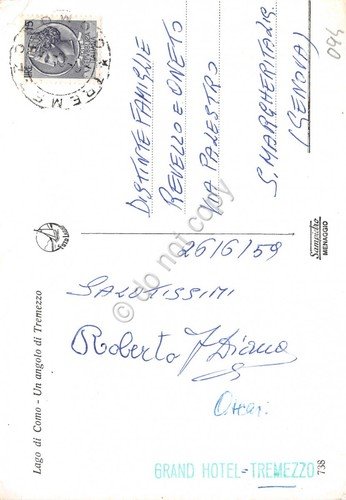 Lago di Como - Un angolo di Tremezzo
26/6/59
SALUTISSIMI
Roberto
Diana
GRAND HOTEL - TREMEZZO
738
Sampietro
MENAGGIO
DISTINTE FAMIGLIE
REVELLO E ONETO
VIA PALESTRO
S. MARGHERITA LIG
(GENOVA)
094
do not copy